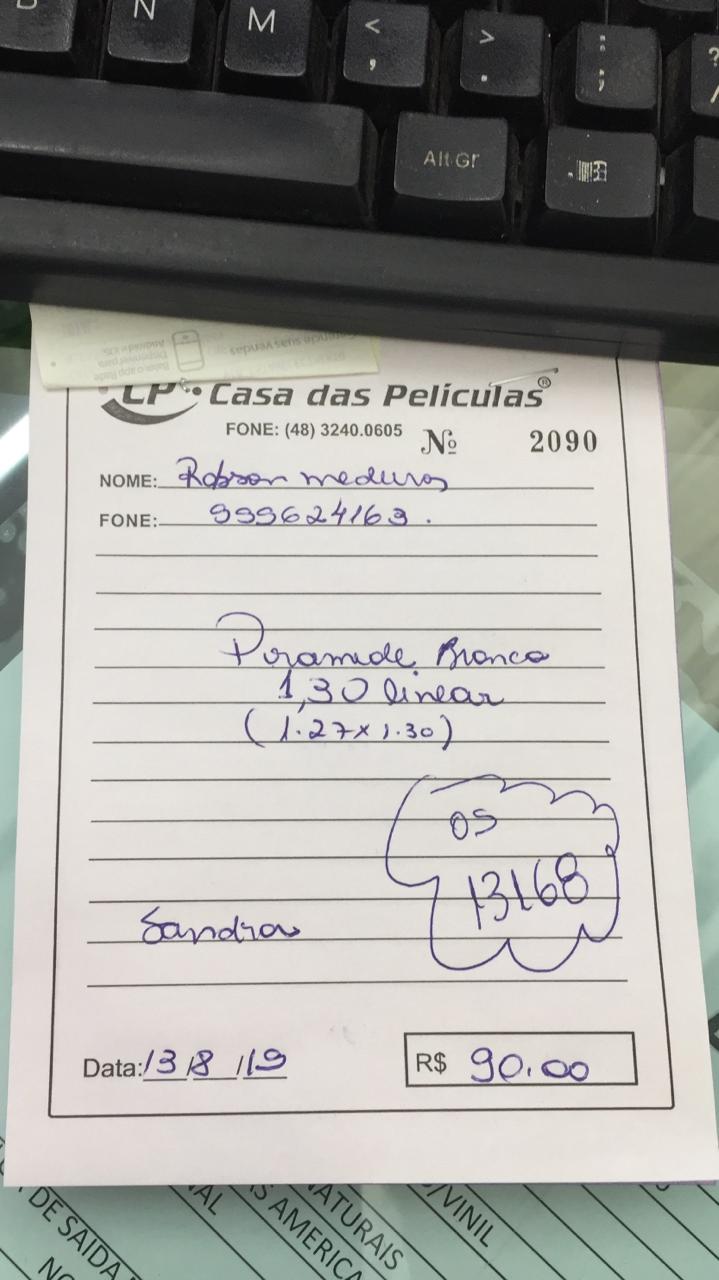 N
M
<
,
>
.
:
;
?
/
Alt Gr
CP Casa das Películas ®
FONE: (48) 3240.0605 Nº 2090
NOME: Robson medeiros
FONE: 999624163.
Piramide Branco
1,30 linear
(1.27x1.30)
OS
13168
Sandra
Data: 13/8/19 R$ 90.00
DE SAIDA
NATURAIS
S AMERICA
/VINIL